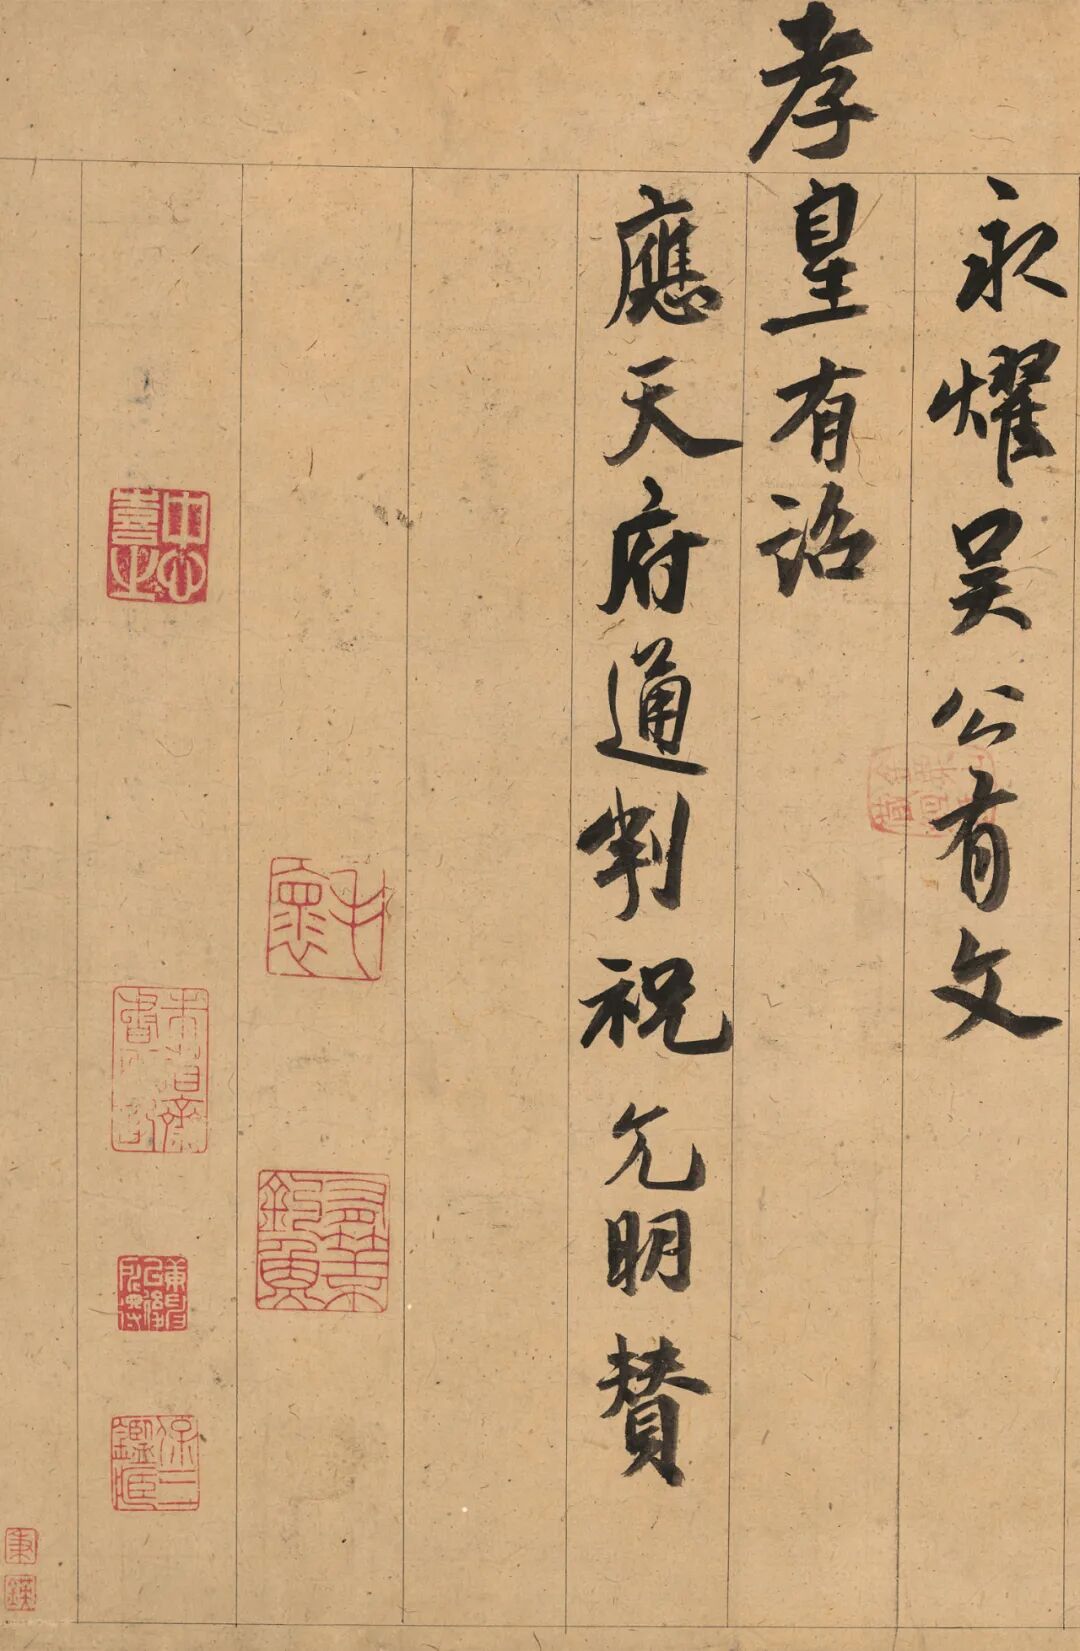 永燿吴公有文
孝皇有詔
應天府通判祝允明贊